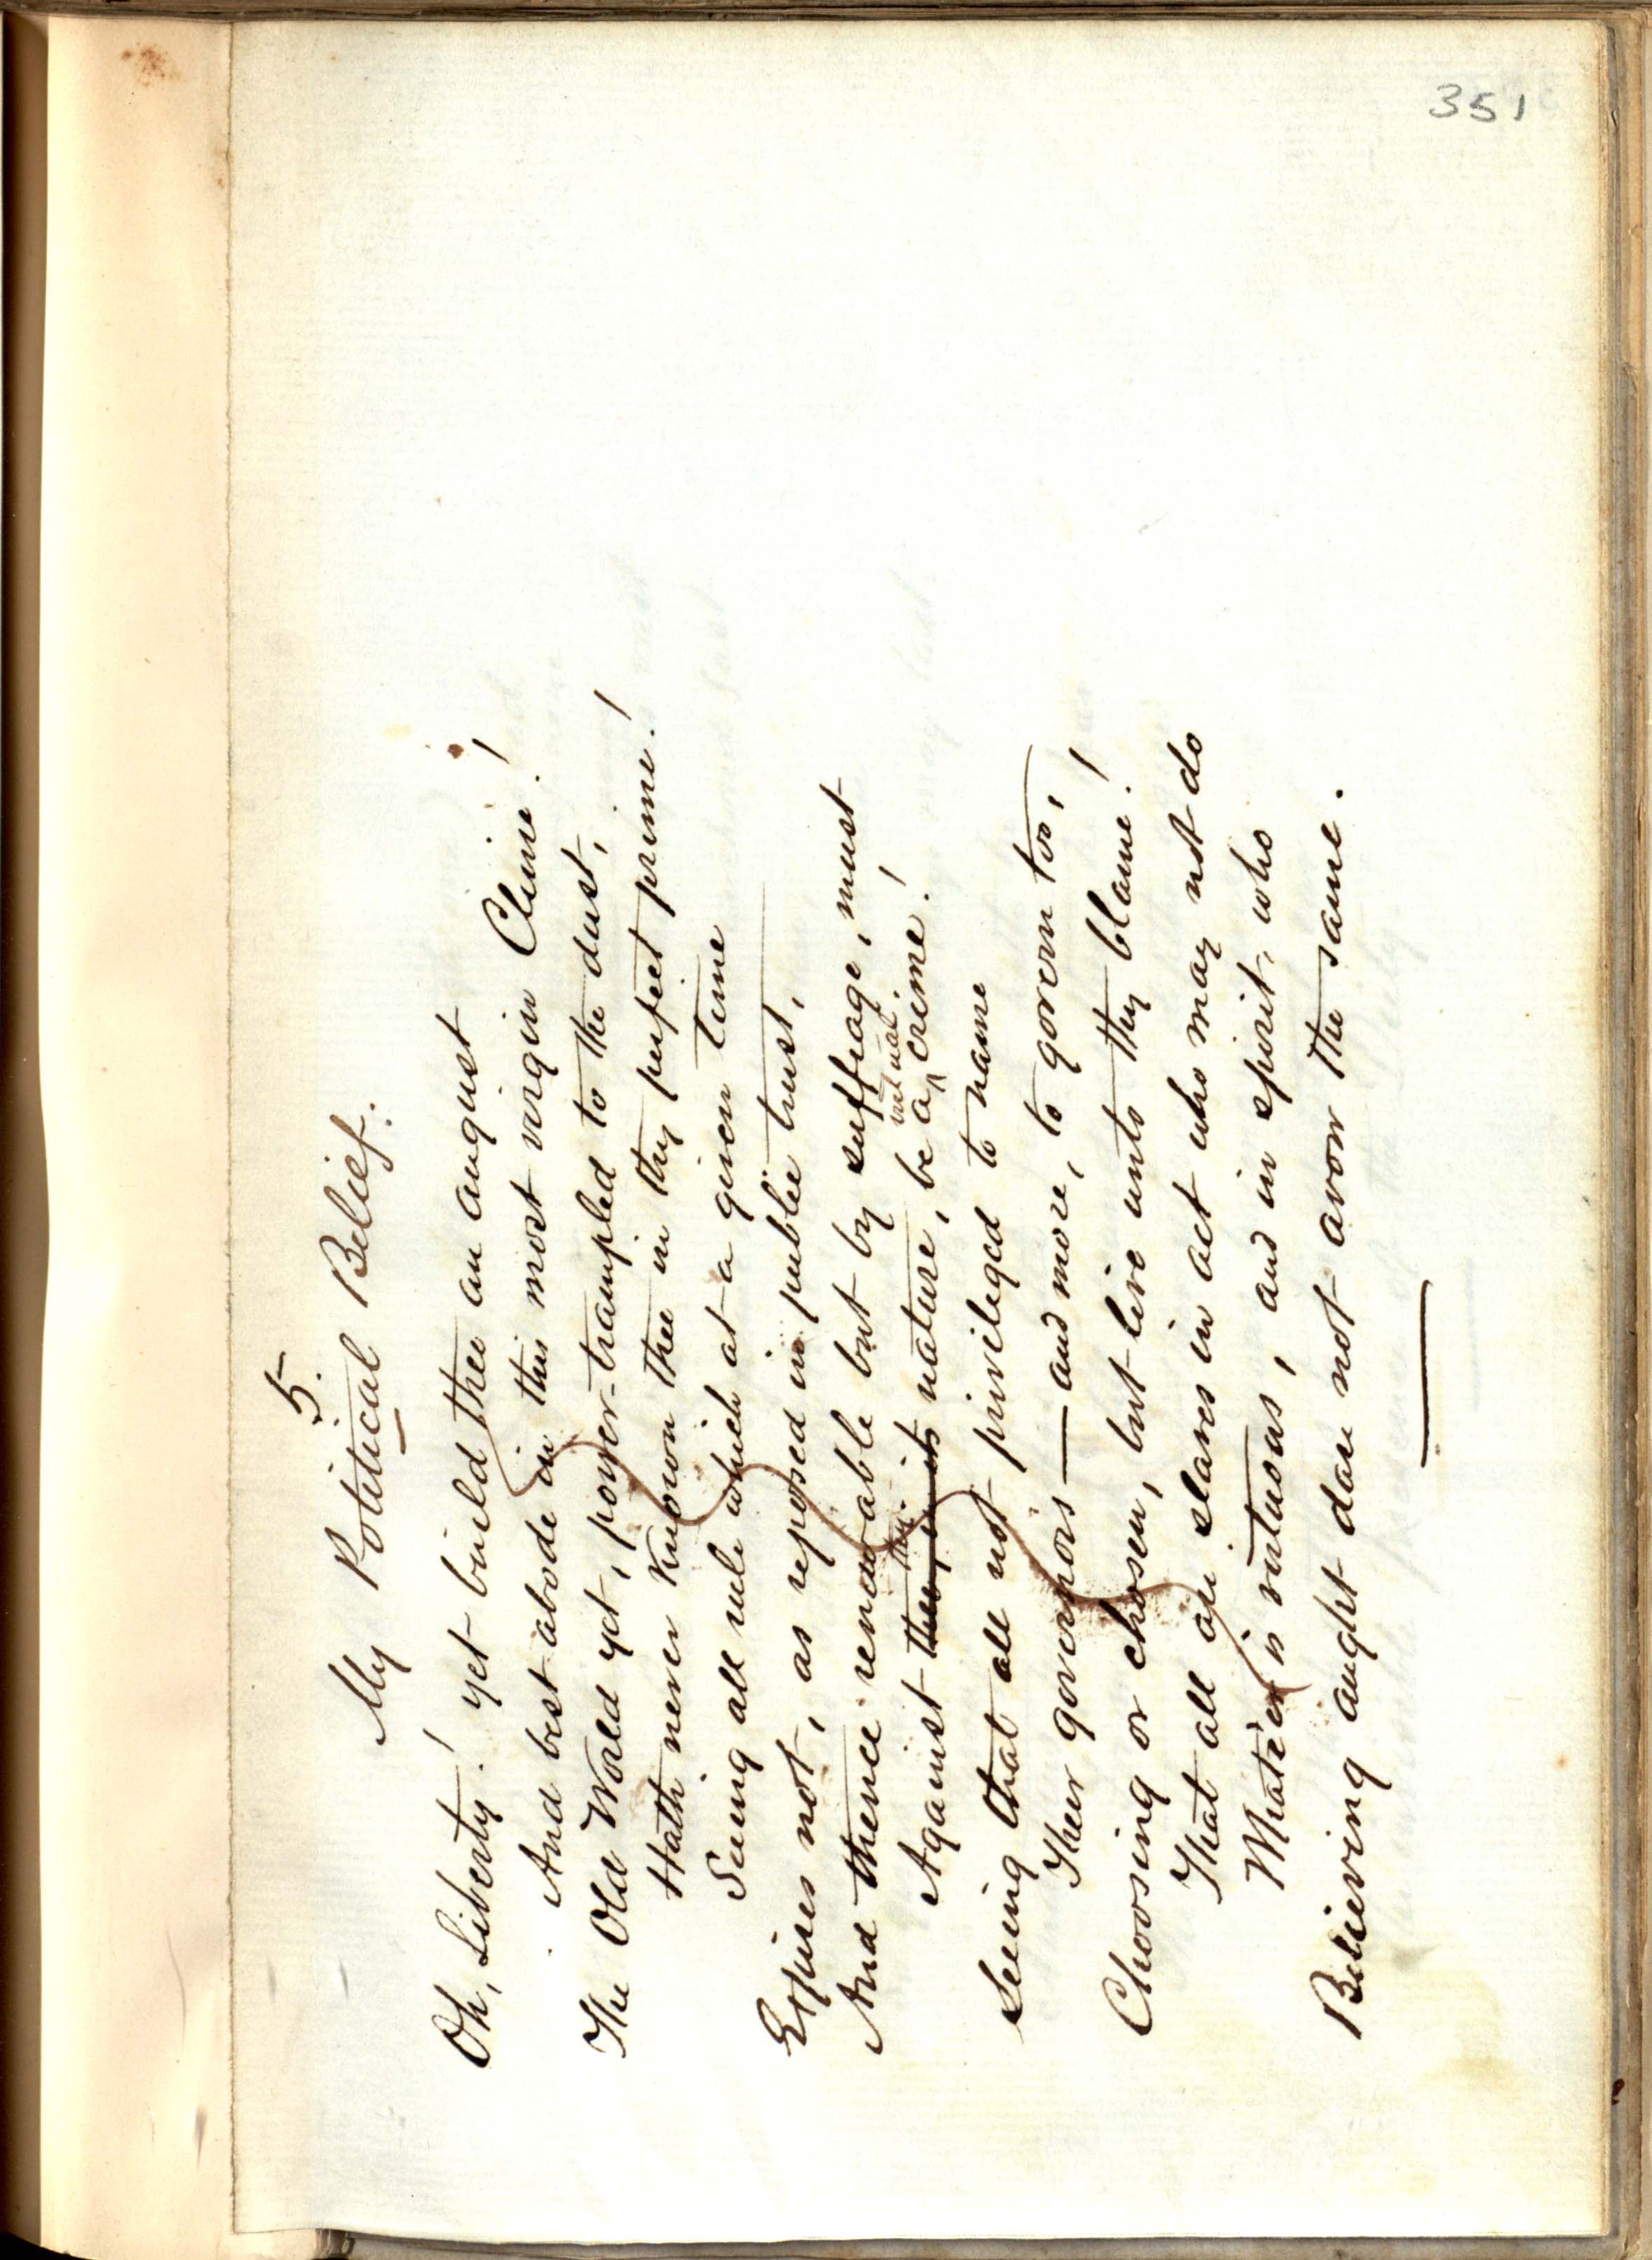 351
5.
My Political Belief.
Oh, Liberty! yet build thee an august
And best abode in this most virgin Clime!
The Old World yet, power-trampled to the dust,
Hath never known thee in thy perfect prime!
Seeing all rule which at a given time
Expires not, as reposed in public trust,
And thence renewable but by suffrage, must
Against nature, be a virtual crime!
Seeing that all not privileged to name
Their governors — and more, to govern too,
Choosing or chosen, but live unto thy blame!
That all are slaves in act who may not do
Whate'er is virtuous, and in spirit, who
Believing aught dare not avow the same.